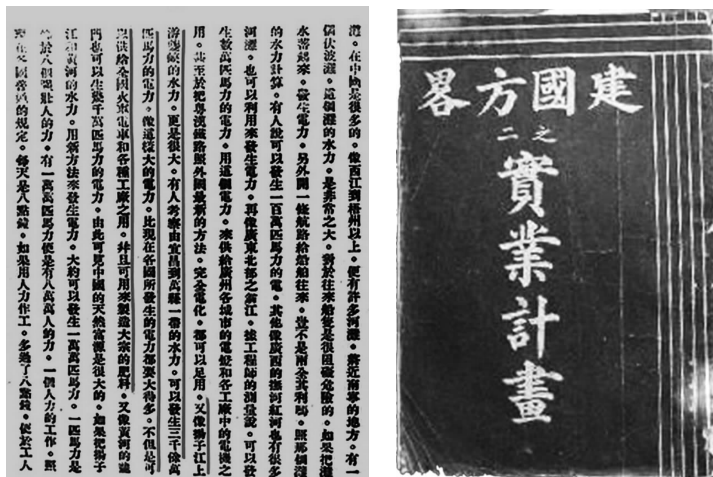 灘。在中國是很多的。像西江到梧州以上。便有許多河灘。將近南寧的地方。有一
個伏波灘。這個灘的水力。是非常之大。對於往來船隻是很阻礙危險的。如果把灘
水蓄起來。發生電力。另外開一條航路給船舶往來。豈不是兩全其利嗎。照那個灘
的水力計算。有人說可以發生一百萬匹馬力的電。其他像廣西的撫河紅河也有很多
河灘。也可以利用來發生電力。再像廣東北部之翁江。據工程師的測量說。可以發
生數萬匹馬力的電力。用這個電力。來供給廣州各城市的電燈和各工廠中的電機之
用。甚至於把粵漢鐵路照外國最新的方法。完全電化。都可以足用。又像揚子江上
游夔峽的水力。更是很大。有人考察由宜昌到萬縣一帶的水力。可以發生三千餘萬
匹馬力的電力。像這樣大的電力。比現在各國所發生的電力都要大得多。不但是可
以供給全國火車電車和各種工廠之用。並且可用來製造大宗的肥料。又像黃河的龍
門也可以生幾千萬匹馬力的電力。由此可見中國的天然富源是很大的。如果把揚子
江和黃河的水力。用新方法來發生電力。大約可以發生一萬萬匹馬力。一匹馬力是
等於八個強壯人的力。有一萬萬匹馬力便是有八萬萬人的力。一個人力的工作。照
現在各國普通的規定。每天是八點鐘。如果用人力作工。多過了八點鐘。便於工人
建國方畧
之二
實業計畫